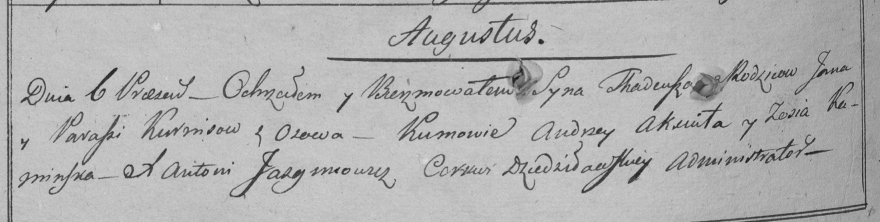 Augustus.
Dnia 6 Praesens – Ochrzciłem y Bierzmowałem Syna Thadeusza Rodzicow Jana
y Paraski Kurnisow z Osowa – Kumowie Andrzey Aksiuta y Zosia Ka-
minska – X Antoni Jazgmowicz Cerkwi Administrator –